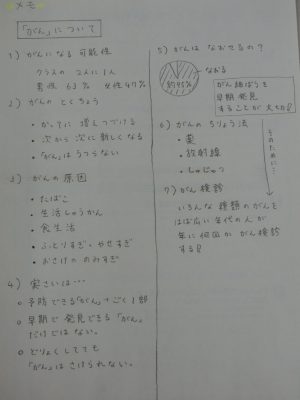 メモ
「がん」について
1) がんになる可能性
クラスの 2人に1人
男性 63% 女性 47%
2) がんの とくちょう
・かってに 増えつづける
・次から 次に新しくなる
・「がん」は うつらない
3) がんの 原因
・たばこ
・生活しゅうかん
・食生活
・ふとりすぎ・やせすぎ
・おさけの のみすぎ
4) 実さいは…
○ 予防できる「がん」→ごく1部
○ 早期で 発見できる「がん」
だけではない。
○ どりょくしてても
「がん」は さけられない。
5) がんは なおせるの?
なおる
約95%
がん細ぼうを
早期発見
することが大切!
6) がんの ちりょう法
・薬
・放射線
・しゅじゅつ
そのために…
7) がん検診
いろんな 種類の がんを
はば広い 年代の 人が
年に 何回か がん検診
する!!